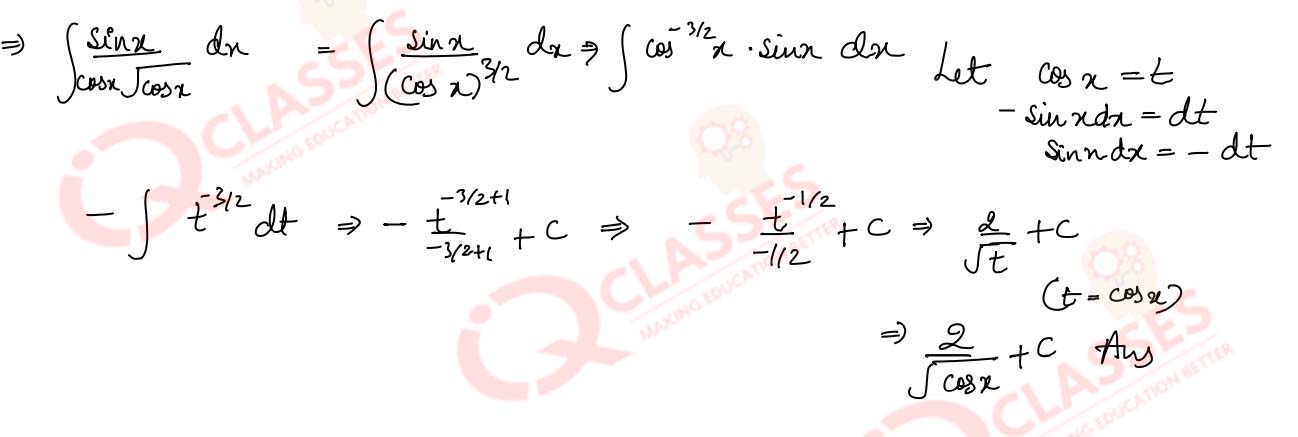 ⇒ ∫ sinx / cosx √cosx dx = ∫ sinx / (cos x)^3/2 dx ⇒ ∫ cos^-3/2 x · sinx dx Let cos x = t
- sinxdx = dt
sinxdx = - dt
- ∫ t^-3/2 dt ⇒ - t^-3/2+1 / -3/2+1 + C ⇒ - t^-1/2 / -1/2 + C ⇒ 2 / √t + C
(t = cosx)
⇒ 2 / √cosx + C Ans
CLASSES
MAKING EDUCATION BETTER
CLASSES
MAKING EDUCATION BETTER
CLASSES
NG EDUCATION BETTER